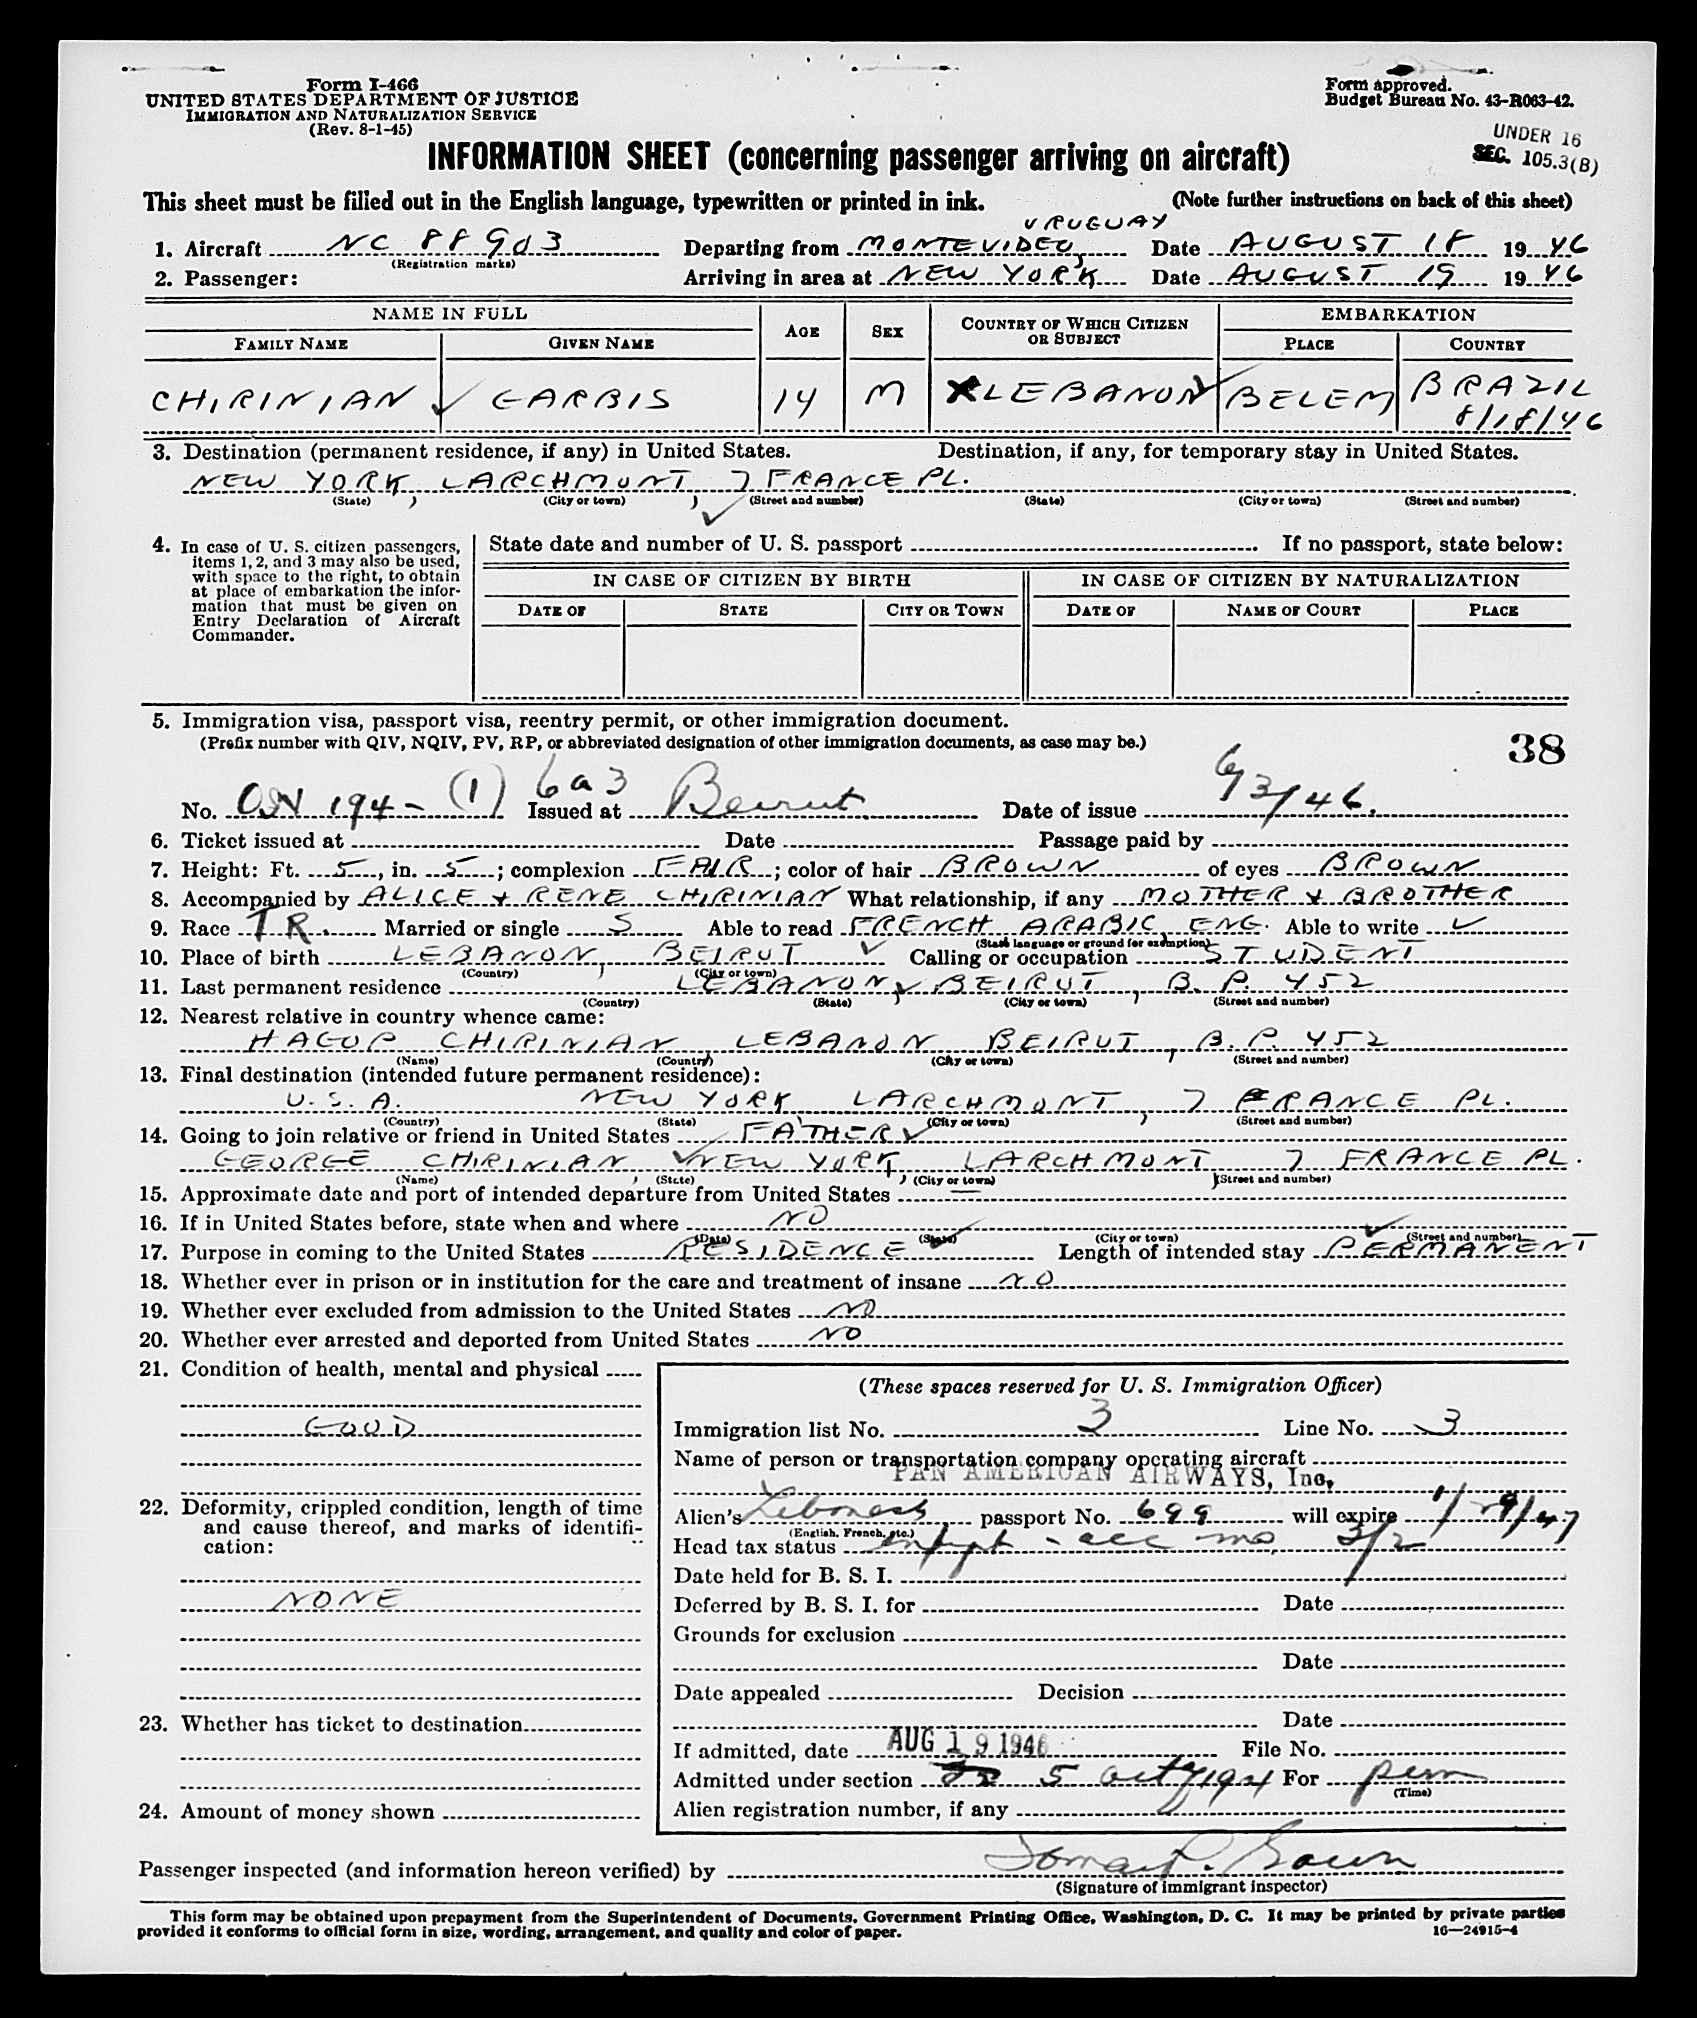 Form I-466
UNITED STATES DEPARTMENT OF JUSTICE
IMMIGRATION AND NATURALIZATION SERVICE
(Rev. 8-1-45)
Form approved.
Budget Bureau No. 43-R063-42.
UNDER 16
SEC. 105.3(B)
INFORMATION SHEET (concerning passenger arriving on aircraft)
This sheet must be filled out in the English language, typewritten or printed in ink. (Note further instructions on back of this sheet)
URUGUAY
1. Aircraft NC 88903 Departing from MONTEVIDEO, Date AUGUST 18 1946
(Registration marks)
2. Passenger: Arriving in area at NEW YORK Date AUGUST 19 1946
NAME IN FULL AGE SEX COUNTRY OF WHICH CITIZEN OR SUBJECT EMBARKATION
FAMILY NAME GIVEN NAME PLACE COUNTRY
CHIRINIAN GARBIS 14 M X LEBANON BELEM BRAZIL
8/18/46
3. Destination (permanent residence, if any) in United States. Destination, if any, for temporary stay in United States.
NEW YORK, LARCHMONT, 7 FRANCE PL.
(State) (City or town) (Street and number) (State) (City or town) (Street and number)
4. In case of U. S. citizen passengers, items 1, 2, and 3 may also be used, with space to the right, to obtain at place of embarkation the information that must be given on Entry Declaration of Aircraft Commander.
State date and number of U. S. passport If no passport, state below:
IN CASE OF CITIZEN BY BIRTH IN CASE OF CITIZEN BY NATURALIZATION
DATE OF STATE CITY OR TOWN DATE OF NAME OF COURT PLACE
5. Immigration visa, passport visa, reentry permit, or other immigration document.
(Prefix number with QIV, NQIV, PV, RP, or abbreviated designation of other immigration documents, as case may be.)
38
No. 194-(1) 6a3 Issued at Beirut Date of issue 6/3/46.
6. Ticket issued at Date Passage paid by
7. Height: Ft. 5, in. 5; complexion FAIR; color of hair BROWN of eyes BROWN
8. Accompanied by ALICE & RENE CHIRINIAN What relationship, if any MOTHER & BROTHER
9. Race TR. Married or single S Able to read FRENCH ARABIC ENG. Able to write ✓
(State language or ground for exemption)
10. Place of birth LEBANON, BEIRUT Calling or occupation STUDENT
(Country) (City or town)
11. Last permanent residence LEBANON, BEIRUT, B. P. 452
(Country) (State) (City or town) (Street and number)
12. Nearest relative in country whence came:
HAGOP CHIRINIAN LEBANON BEIRUT, B. P. 452
(Name) (Country) (City or town) (Street and number)
13. Final destination (intended future permanent residence):
U.S.A. NEW YORK, LARCHMONT, 7 FRANCE PL.
(Country) (State) (City or town) (Street and number)
14. Going to join relative or friend in United States FATHER
GEORGE CHIRINIAN, NEW YORK, LARCHMONT, 7 FRANCE PL.
(Name) (State) (City or town) (Street and number)
15. Approximate date and port of intended departure from United States —
16. If in United States before, state when and where NO
(Date) (State) (City or town) (Street and number)
17. Purpose in coming to the United States RESIDENCE Length of intended stay PERMANENT
18. Whether ever in prison or in institution for the care and treatment of insane NO
19. Whether ever excluded from admission to the United States NO
20. Whether ever arrested and deported from United States NO
21. Condition of health, mental and physical
GOOD
22. Deformity, crippled condition, length of time and cause thereof, and marks of identification:
NONE
23. Whether has ticket to destination
24. Amount of money shown
(These spaces reserved for U. S. Immigration Officer)
Immigration list No. 3 Line No. 3
Name of person or transportation company operating aircraft
PAN AMERICAN AIRWAYS, Inc.
Alien's Lebanese passport No. 699 will expire 1/29/47
(English, French, etc.)
Head tax status - acc mo 3/2
Date held for B. S. I.
Deferred by B. S. I. for Date
Grounds for exclusion
Date
Date appealed Decision
Date
If admitted, date AUG 19 1946 File No.
Admitted under section 5 act of 1924 For perm
(Time)
Alien registration number, if any
Passenger inspected (and information hereon verified) by
(Signature of immigrant inspector)
This form may be obtained upon prepayment from the Superintendent of Documents, Government Printing Office, Washington, D. C. It may be printed by private parties
provided it conforms to official form in size, wording, arrangement, and quality and color of paper. 16—24915-4